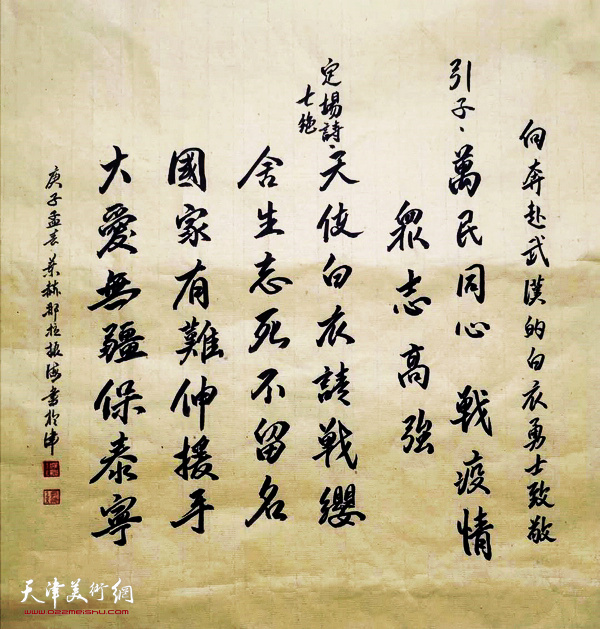 向奔赴武漢的白衣勇士致敬
引子、萬民同心 戰疫情
眾志高強
定場詩、天使白衣請戰纓
七絕
舍生志死不留名
國家有難伸援手
大愛無疆保泰寧
庚子孟春葉赫那拉振海書於津
天津美術網
www.022meishu.com